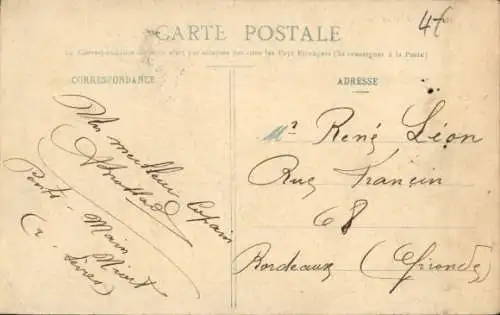 CARTE POSTALE
4f
La Correspondance au recto n'est pas acceptée par tous les Pays Étrangers (Se renseigner à la Poste)
CORRESPONDANCE
ADRESSE
Un meilleur Copain
Ponts - Main
Niort
(2. Sèvres)
Mr René Léon
Rue Françin
68
Bordeaux (Gironde)